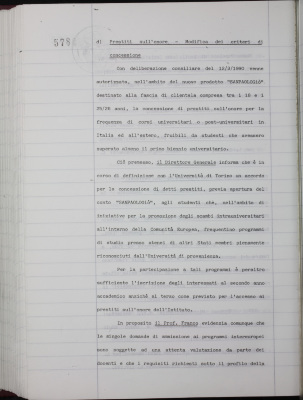 578
d) Prestiti sull'onore. - Modifica dei criteri di
concessione
Con deliberazione consiliare del 12/2/1990 venne
autorizzata, nell'ambito del nuovo prodotto "SANPAOLOGIÀ"
destinato alla fascia di clientela compresa tra i 18 e i
25/26 anni, la concessione di prestiti sull'onore per la
frequenza di corsi universitari o post-universitari in
Italia ed all'estero, fruibili da studenti che avessero
superato almeno il primo biennio universitario.
Ciò premesso, il Direttore Generale informa che è in
corso di definizione con l'Università di Torino un accordo
per la concessione di detti prestiti, previa apertura del
conto "SANPAOLOGIÀ", agli studenti che, nell'ambito di
iniziative per la promozione degli scambi interuniversitari
all'interno della Comunità Europea, frequentino programmi
di studio presso atenei di altri Stati membri pienamente
riconosciuti dell'Università di provenienza.
Per la partecipazione a tali programmi è peraltro
sufficiente l'iscrizione degli interessati al secondo anno
accademico anziché al terzo come previsto per l'accesso ai
prestiti sull'onore dell'Istituto.
In proposito il Prof. Franco evidenzia comunque che
le singole domande di ammissione ai programmi interuropei
sono soggette ad una attenta valutazione da parte dei
docenti e che i requisiti richiesti sotto il profilo della